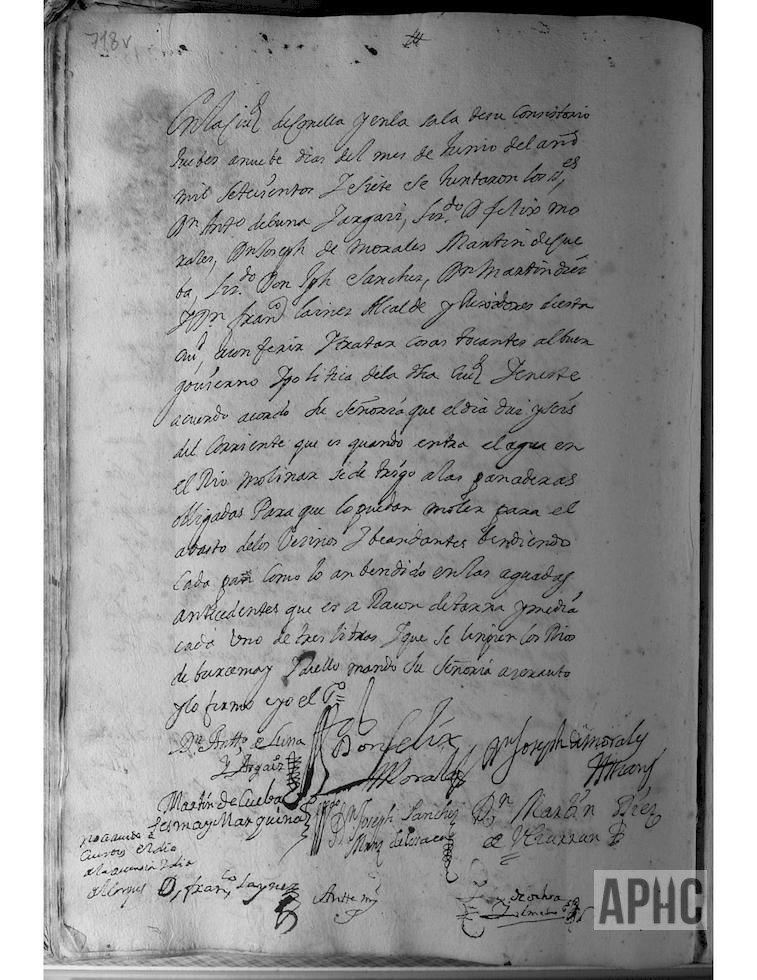 718v
En la ciud de Corella y en la sala de su Consistorio
Juebes a nuebe dias del mes de Junio del año
mil setecientos y siete se Juntaron los SSes
Dn Anto de luna y argaiz, Lizdo D felix mo
rales, Dn Joseph de morales Martin de Cue
ba, Lizdo Don Jph Sanchez, Dn Martin diez
y Dn franco lainez Alcalde y Rexidores desta
ciud a conferir y tratar cosas tocantes al buen
gouierno y politica de la dha ciud y en este
acuerdo acordo su señoria que el dia diez y seis
del Corriente que es quando entra el agua en
el Rio molinar se de trigo a las panaderas
obligadas Para que lo puedan moler para el
abasto de los Vezinos y abitantes bendiendo
cada pan Como lo an bendido en las aguadas
antecedentes que es a Raçon de tarxa y media
cada Uno de tres libras y que se linpien los Rios
de y a ello mando su señoria asentar auto
y lo firmo e yo el sno=
Dn Antto de Luna
y Argaiz
Don felix
Morales
Dn Joseph de morales
Martin de Cueba
Ledesma y Marquina
Dn Joseph Sanchez
Dn Martin Diez
de
no
el dia
de la ascension y dia
del corpus
D, franco Laynez
Antte mi
APHC